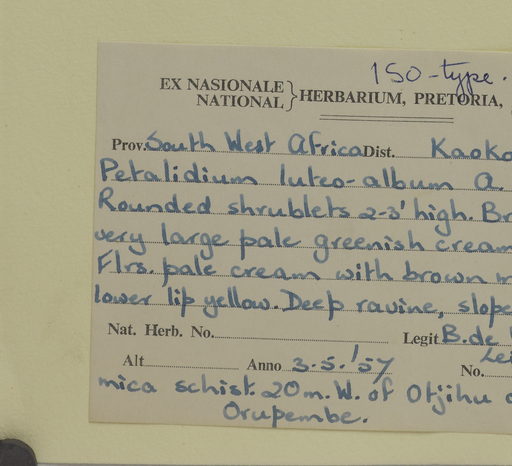 ISO-type.
EX NASIONALE
NATIONAL } HERBARIUM, PRETORIA,
Prov. South West Africa Dist. Kaoko
Petalidium luteo-album A.
Rounded shrublets 2-3' high. Br
very large pale greenish cream
Flrs. pale cream with brown m
lower lip yellow. Deep ravine, slope
Nat. Herb. No. Legit B. de
Lei
Alt Anno 3.5.'57 No.
mica schist. 20 m. W. of Otjihu
Orupembe.